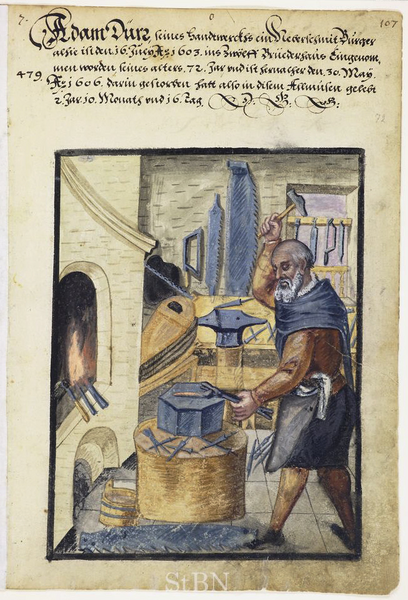 7.
107
Adam Dürz, seines Handtwerckhs ein Neberschmit Burger
alhie ist den 16. July Aº 1603. ins Zwölff Brüederhaus Eingenom,
men worden seines alters, 72. Jar vnd ist hernacher den. 30. May.
479
Aº 1606. darin gestorben hatt also in disem Allmusen gelebt
2 Jar. 10. Monath vnd 16. Tag
StBN